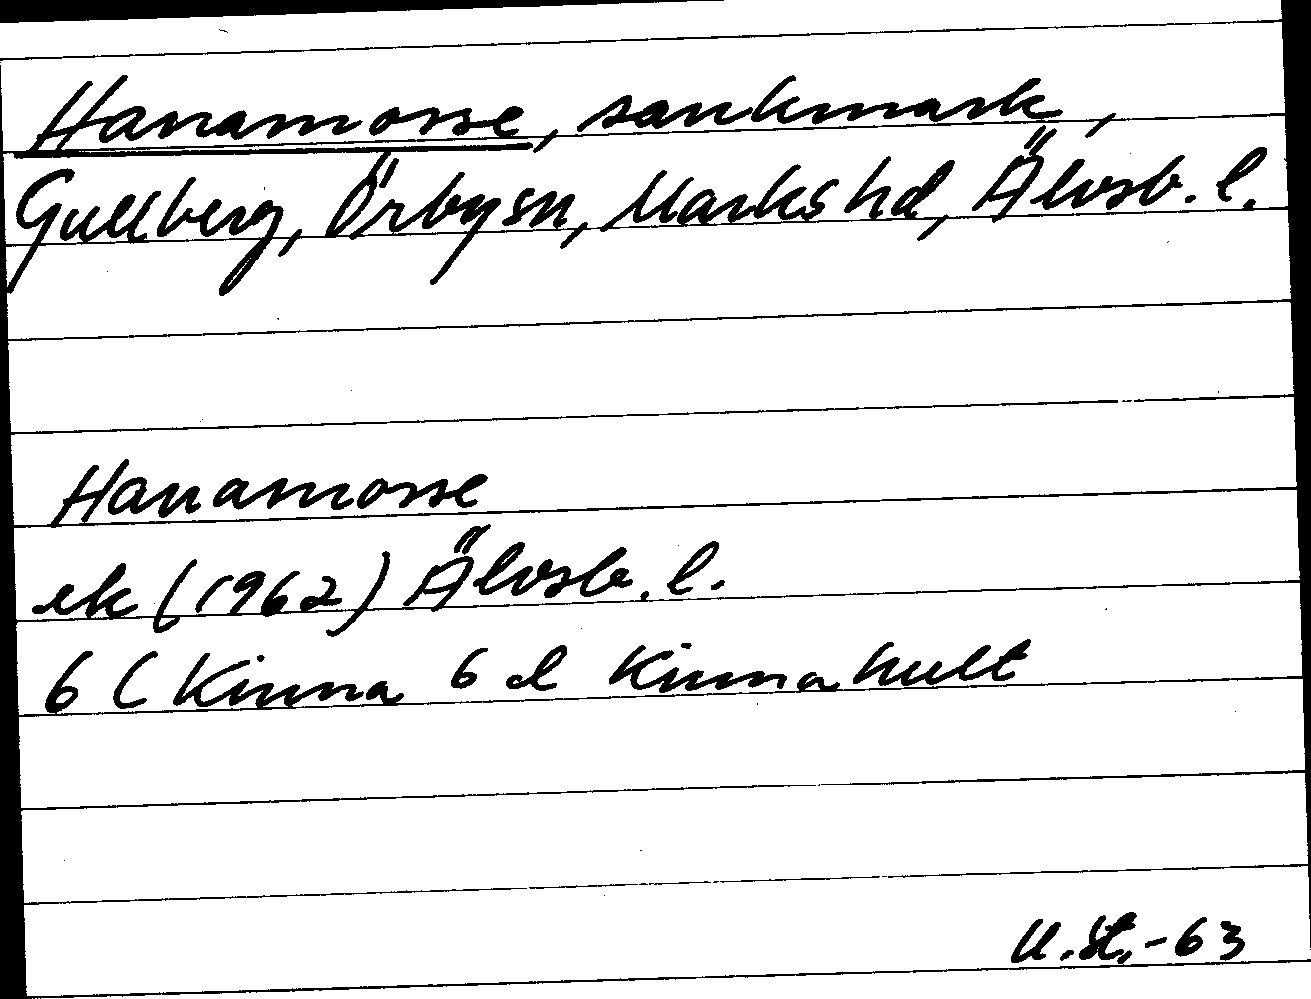 Hanamosse, sankmark,
Gullberg, Örby sn, Marks hd, Älvsb. l.
Hanamosse
ek (1962) Älvsb. l.
6 C Kinna 6 d Kinnahult
U. St. -63